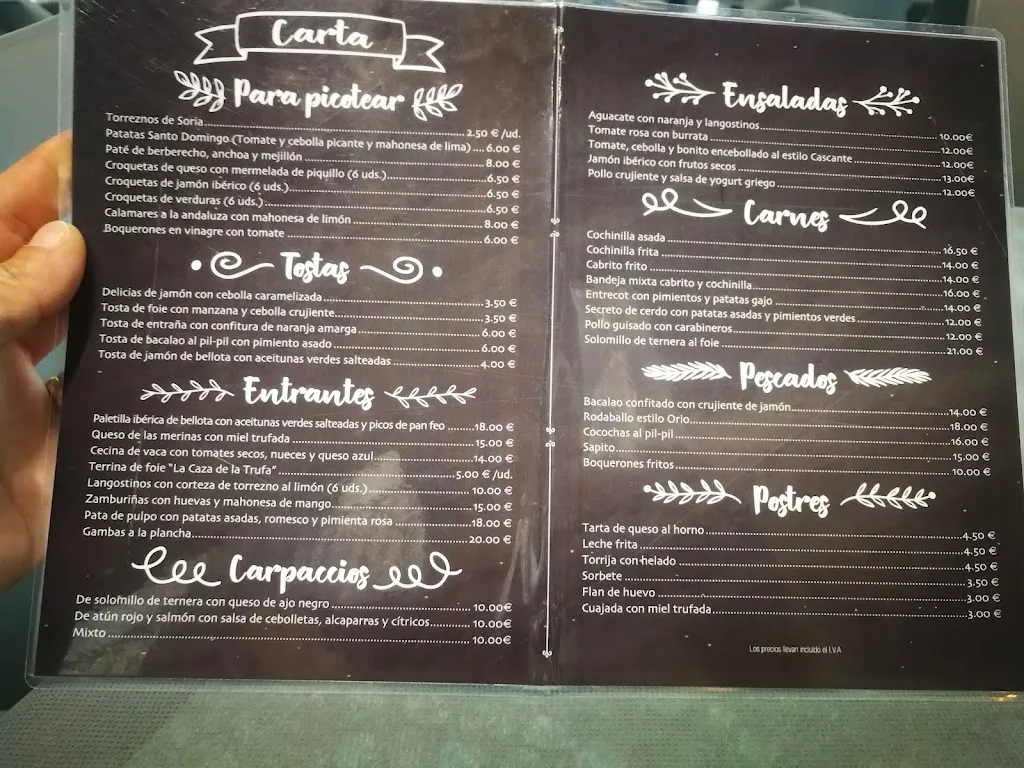 Carta
Para picotear
Torreznos de Soria 2.50 €/ud.
Patatas Santo Domingo (Tomate y cebolla picante y mahonesa de lima) 6.00 €
Paté de berberecho, anchoa y mejillón 8.00 €
Croquetas de queso con mermelada de piquillo (6 uds.) 6.50 €
Croquetas de jamón ibérico (6 uds.) 6.50 €
Croquetas de verduras (6 uds.) 6.50 €
Calamares a la andaluza con mahonesa de limón 8.00 €
Boquerones en vinagre con tomate 6.00 €
Tostas
Delicias de jamón con cebolla caramelizada 3.50 €
Tosta de foie con manzana y cebolla crujiente 3.50 €
Tosta de entraña con confitura de naranja amarga 6.00 €
Tosta de bacalao al pil-pil con pimiento asado 6.00 €
Tosta de jamón de bellota con aceitunas verdes salteadas 4.00 €
Entrantes
Paletilla ibérica de bellota con aceitunas verdes salteadas y picos de pan feo 18.00 €
Queso de las merinas con miel trufada 15.00 €
Cecina de vaca con tomates secos, nueces y queso azul 14.00 €
Terrina de foie "La Caza de la Trufa" 5.00 €/ud.
Langostinos con corteza de torrezno al limón (6 uds.) 10.00 €
Zamburiñas con huevas y mahonesa de mango 15.00 €
Pata de pulpo con patatas asadas, romesco y pimienta rosa 18.00 €
Gambas a la plancha 20.00 €
Carpaccios
De solomillo de ternera con queso de ajo negro 10.00€
De atún rojo y salmón con salsa de cebolletas, alcaparras y cítricos 10.00€
Mixto 10.00€
Ensaladas
Aguacate con naranja y langostinos 10.00€
Tomate rosa con burrata 12.00€
Tomate, cebolla y bonito encebollado al estilo Cascante 12.00€
Jamón ibérico con frutos secos 13.00€
Pollo crujiente y salsa de yogurt griego 12.00€
Carnes
Cochinilla asada 16.50 €
Cochinilla frita 14.00 €
Cabrito frito 14.00 €
Bandeja mixta cabrito y cochinilla 16.00 €
Entrecot con pimientos y patatas gajo 14.00 €
Secreto de cerdo con patatas asadas y pimientos verdes 12.00 €
Pollo guisado con carabineros 12.00 €
Solomillo de ternera al foie 21.00 €
Pescados
Bacalao confitado con crujiente de jamón 14.00 €
Rodaballo estilo Orio 18.00 €
Cocochas al pil-pil 16.00 €
Sapito 15.00 €
Boquerones fritos 10.00 €
Postres
Tarta de queso al horno 4.50 €
Leche frita 4.50 €
Torrija con helado 4.50 €
Sorbete 3.50 €
Flan de huevo 3.00 €
Cuajada con miel trufada 3.00 €
Los precios llevan incluido el I.V.A